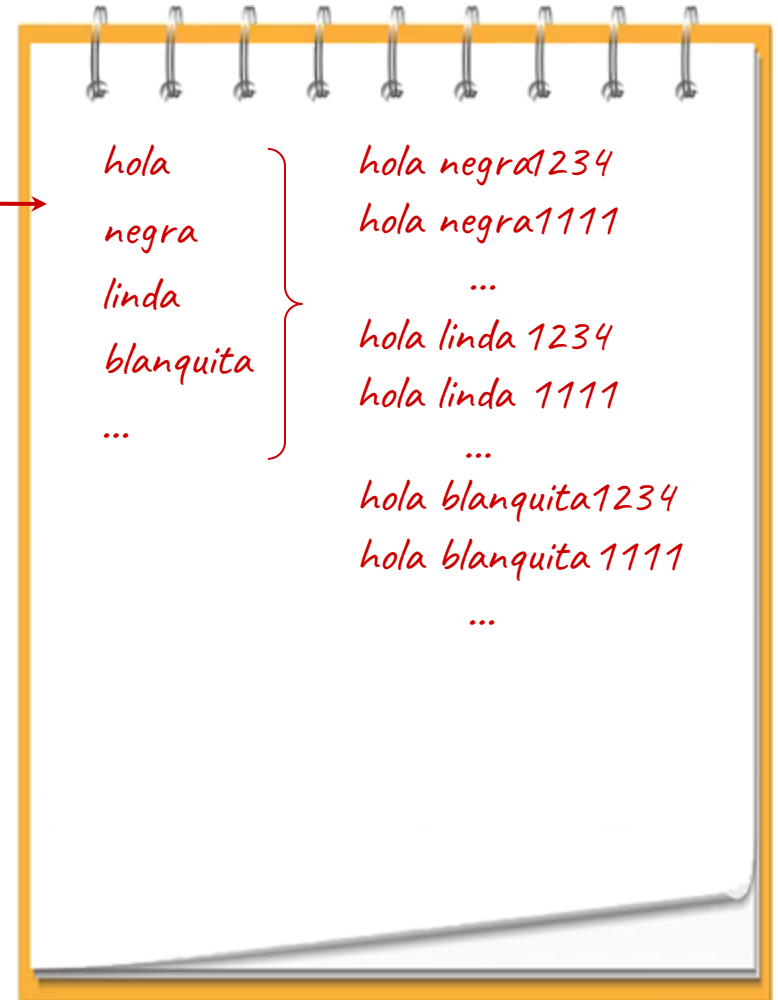 hola
negra
linda
blanquita
...
hola negra1234
hola negra1111
...
hola linda 1234
hola linda 1111
...
hola blanquita1234
hola blanquita 1111
...